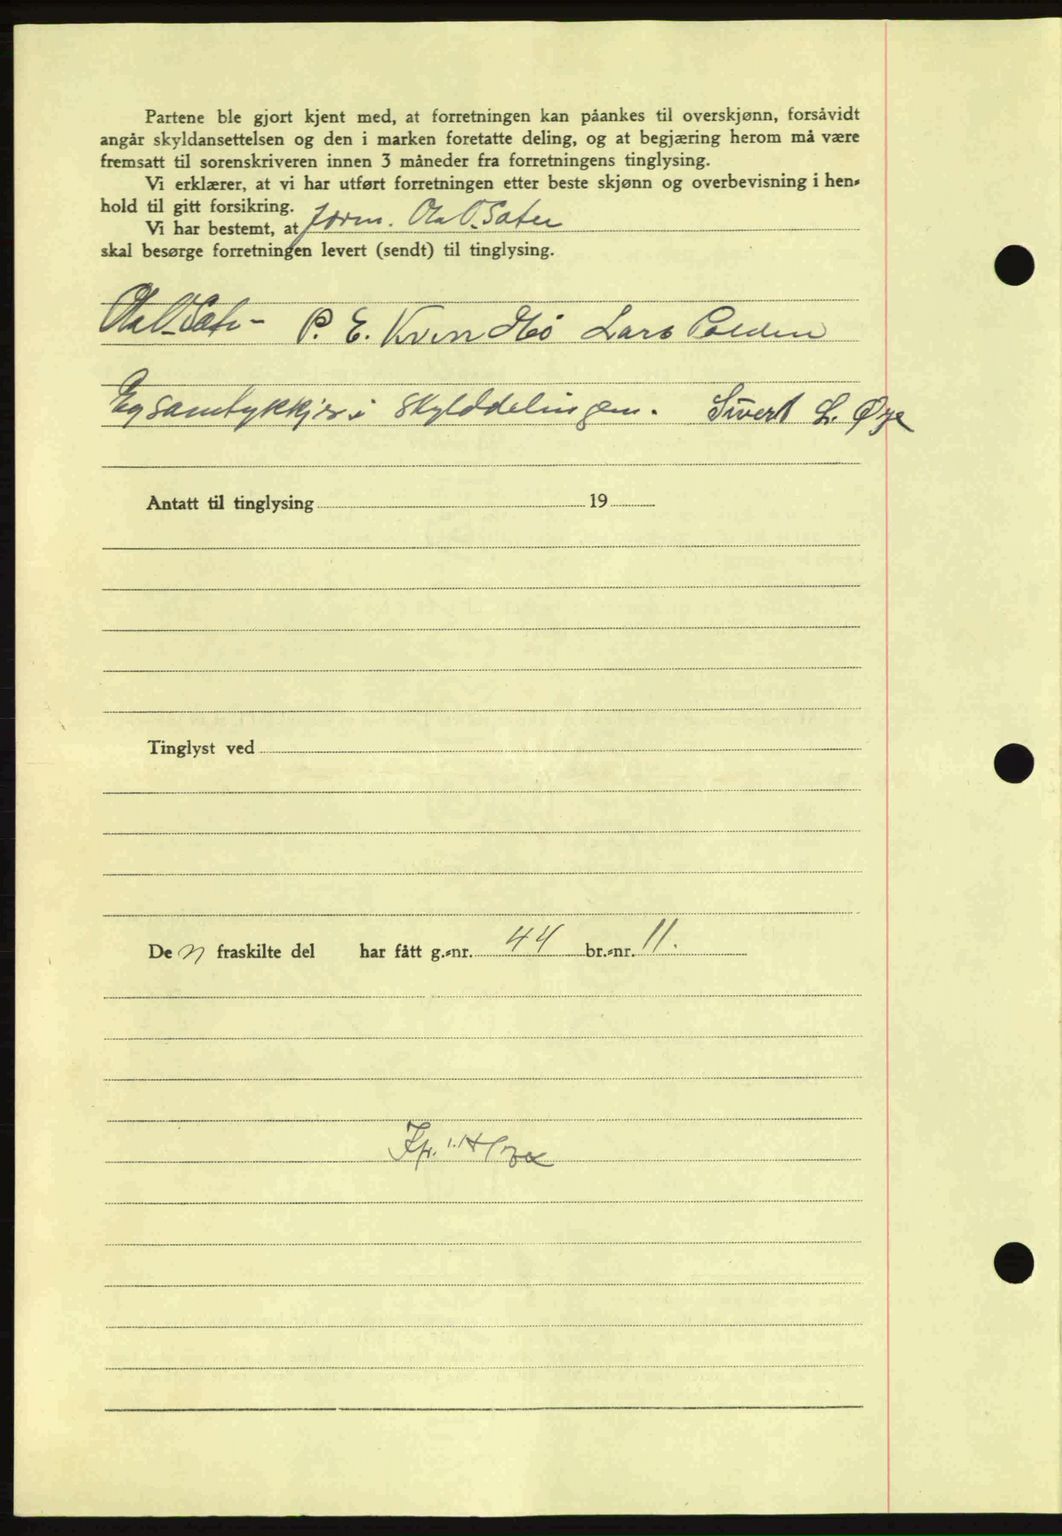 Partene ble gjort kjent med, at forretningen kan påankes til overskjønn, forsåvidt
angår skyldansettelsen og den i marken foretatte deling, og at begjæring herom må være
fremsatt til sorenskriveren innen 3 måneder fra forretningens tinglysing.
Vi erklærer, at vi har utført forretningen etter beste skjønn og overbevisning i hen-
hold til gitt forsikring.
Vi har bestemt, at form. Ola O. Sæter
skal besørge forretningen levert (sendt) til tinglysing.
Ola O. Sæter P. E. Kvendbø Lars Polden
Eg samtykkjer i skylddelingen. Sivert L. Øye
Antatt til tinglysing 19
Tinglyst ved
De n fraskilte del har fått g.-nr. 44 br.-nr. 11.